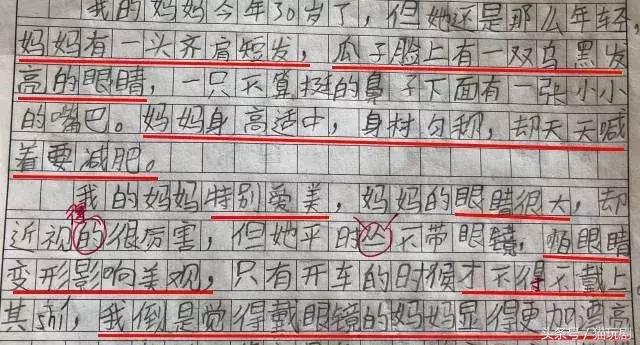 我的妈妈今年30岁了，但她还是那么年轻，
妈妈有一头齐肩短发，瓜子脸上有一双乌黑发
亮的眼睛，一只不算挺的鼻子下面有一张小小
的嘴巴。妈妈身高适中，身材匀称，却天天喊
着要减肥。
我的妈妈特别爱美，妈妈的眼睛很大，却
得
近视的很厉害，但她平时从不带眼镜，怕眼睛
变形影响美观，只有开车的时候才不得不戴上
其shí，我倒是觉得戴眼镜的妈妈显得更加漂亮
头条号 / 猫玩剧